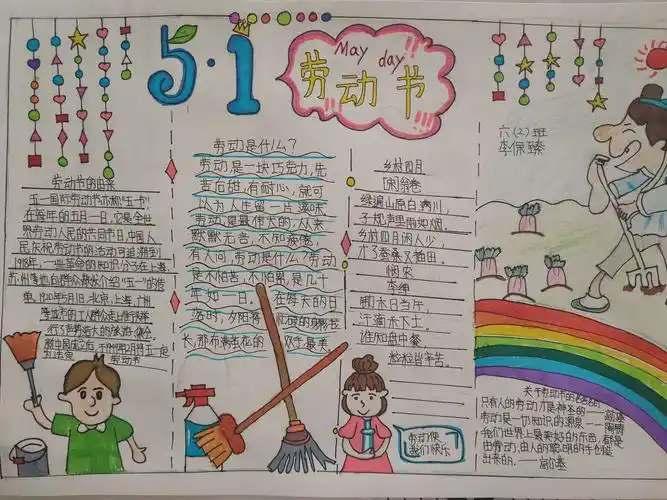 5·1
May day
劳动节
六(2)班
李保臻
劳动节的由来
五一国际劳动节亦称"五一节"
在每年的五月一日,它是全世
界劳动人民的共同节日,中国人
民庆祝劳动节的活动可追溯到
1918年,一些革命的知识分子在上海、
苏州等地向群众散发介绍"五一"的传
单,1920年5月1日,北京,上海,广州
等城市的工人群众走上街头举
行了声势浩大的游行,集会
新中国成立后,于1949年12月将五一定
为法定劳动节
劳动是什么?
劳动是一块巧克力,先
苦后甜,有耐心,就可
以为人生留一片滋味
劳动是最伟大的,从来
默默无言,不知疲倦,
有人问,劳动是什么?劳动
是不怕苦,不怕累,是几十
年如一日。在每天的日
落时,夕阳将
长,那布满老花的双手最美。
乡村四月
[宋]翁卷
绿遍山原白满川,
子规声里雨如烟。
乡村四月闲人少,
才了蚕桑又插田。
悯农
李绅
锄禾日当午,
汗滴禾下土。
谁知盘中餐
粒粒皆辛苦。
劳动使
我们快乐
关于劳动节的名言
只有人的劳动才是神圣的
劳动是一切知识的源泉——陶铸
我们世界上最美好的东西,都是
由劳动,由人的聪明的手创造
出来的。——高尔基